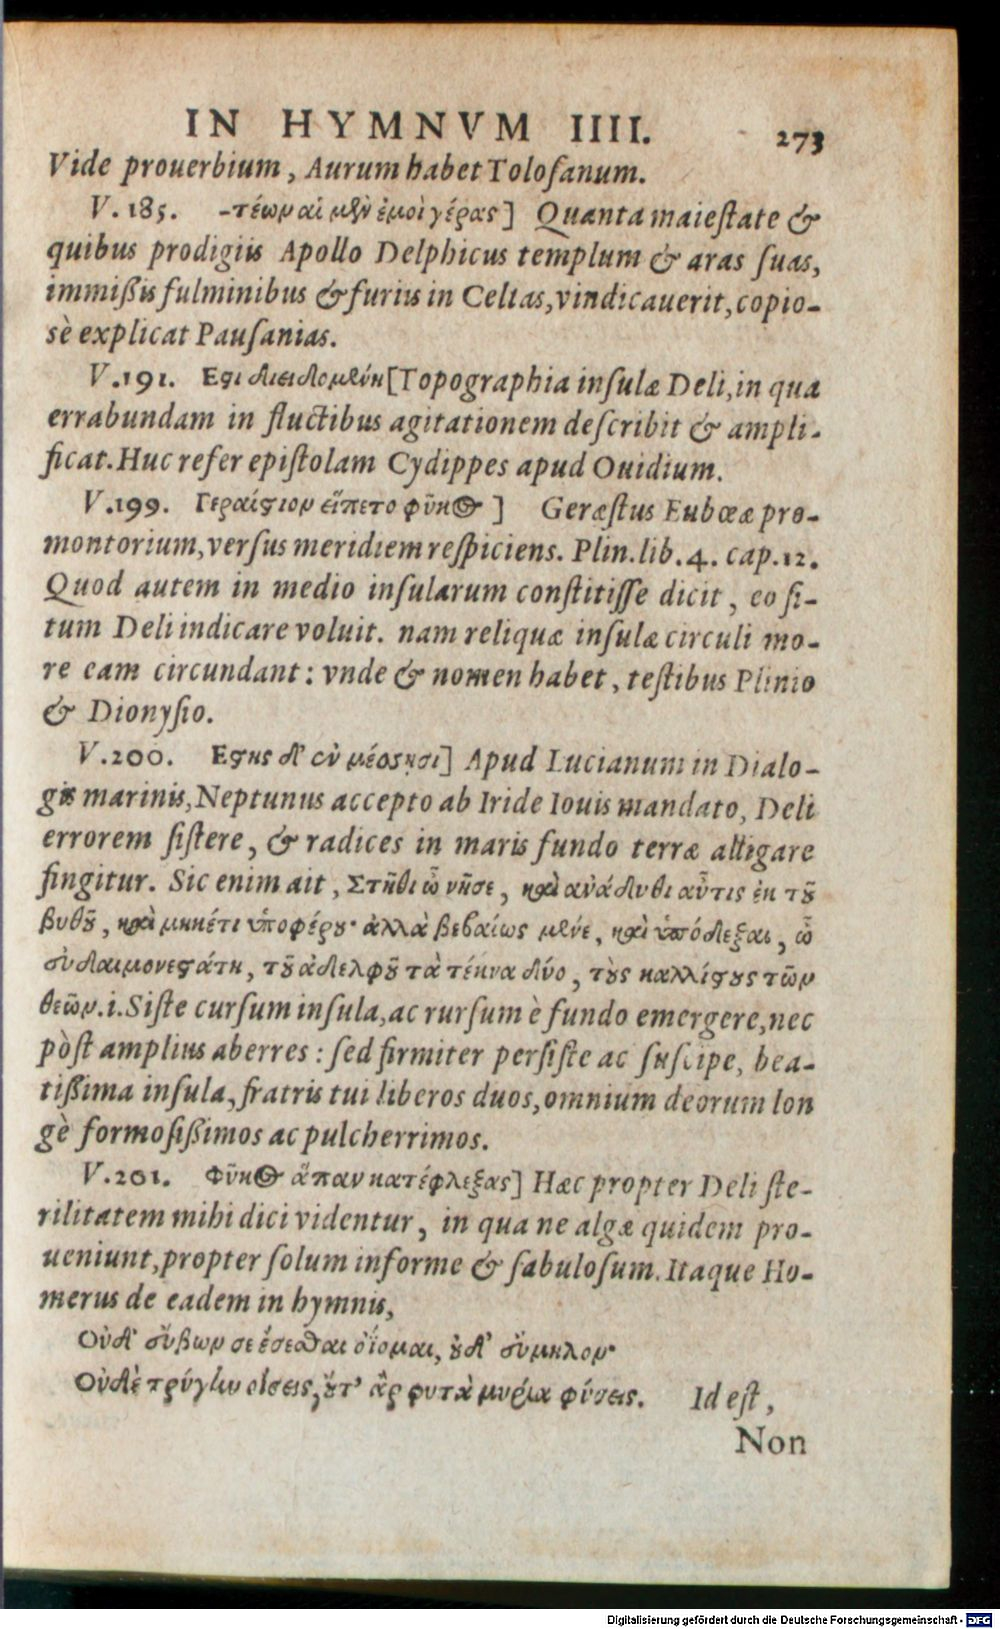 IN HYMNVM IIII. 273
Vide prouerbium, Aurum habet Tolosanum.
V. 185. -τέων αἱ μὲν ἐμοὶ γέρας] Quanta maiestate &
quibus prodigiis Apollo Delphicus templum & aras suas,
immißis fulminibus & furiis in Celtas, vindicauerit, copio-
sè explicat Pausanias.
V.191. Εςι διειδομένη[Topographia insulæ Deli, in qua
errabundam in fluctibus agitationem describit & ampli-
ficat. Huc refer epistolam Cydippes apud Ouidium.
V.199. Γεραίςιον εἵπετο φῦκος] Geræstus Eubœæ pro-
montorium, versus meridiem respiciens. Plin. lib. 4. cap. 12.
Quod autem in medio insularum constitisse dicit, eo si-
tum Deli indicare voluit. nam reliquæ insulæ circuli mo-
re eam circundant: vnde & nomen habet, testibus Plinio
& Dionysio.
V.200. Εςης δ' ἐν μέσσησι] Apud Lucianum in Dialo-
gis marinis, Neptunus accepto ab Iride Iouis mandato, Deli
errorem sistere, & radices in maris fundo terræ alligare
fingitur. Sic enim ait, Στῆθι ὦ νῆσε, καὶ ἀνάδυθι αὖτις ἐκ τοῦ
βυθοῦ, καὶ μηκέτι ὑποφέρου· ἀλλὰ βεβαίως μένε, καὶ ὑπόδεξαι, ὦ
εὐδαιμονεςάτη, τοῦ ἀδελφοῦ τὰ τέκνα δύο, τοὺς καλλίςους τῶν
θεῶν.i. Siste cursum insula, ac rursum è fundo emerge­re, nec
pòst amplius aberres: sed firmiter persiste ac suscipe, bea-
tißima insula, fratris tui liberos duos, omnium deorum lon
gè formosißimos ac pulcherrimos.
V.201. Φῦκος ἅπαν κατέφλεξας] Hæc propter Deli ste-
rilitatem mihi dici videntur, in qua ne algæ quidem pro-
ueniunt, propter solum informe & sabulosum. Itaque Ho-
merus de eadem in hymnis,
Οὐδ' εὔβων σε ἔσεσθαι ὀΐομαι, οὐδ' εὔμηλον·
Οὐδὲ τρύγην οἴσεις, οὔτ' ἂρ φυτὰ μυρία φύσεις. Id est,
Non
Digitalisierung gefördert durch die Deutsche Forschungsgemeinschaft - DFG